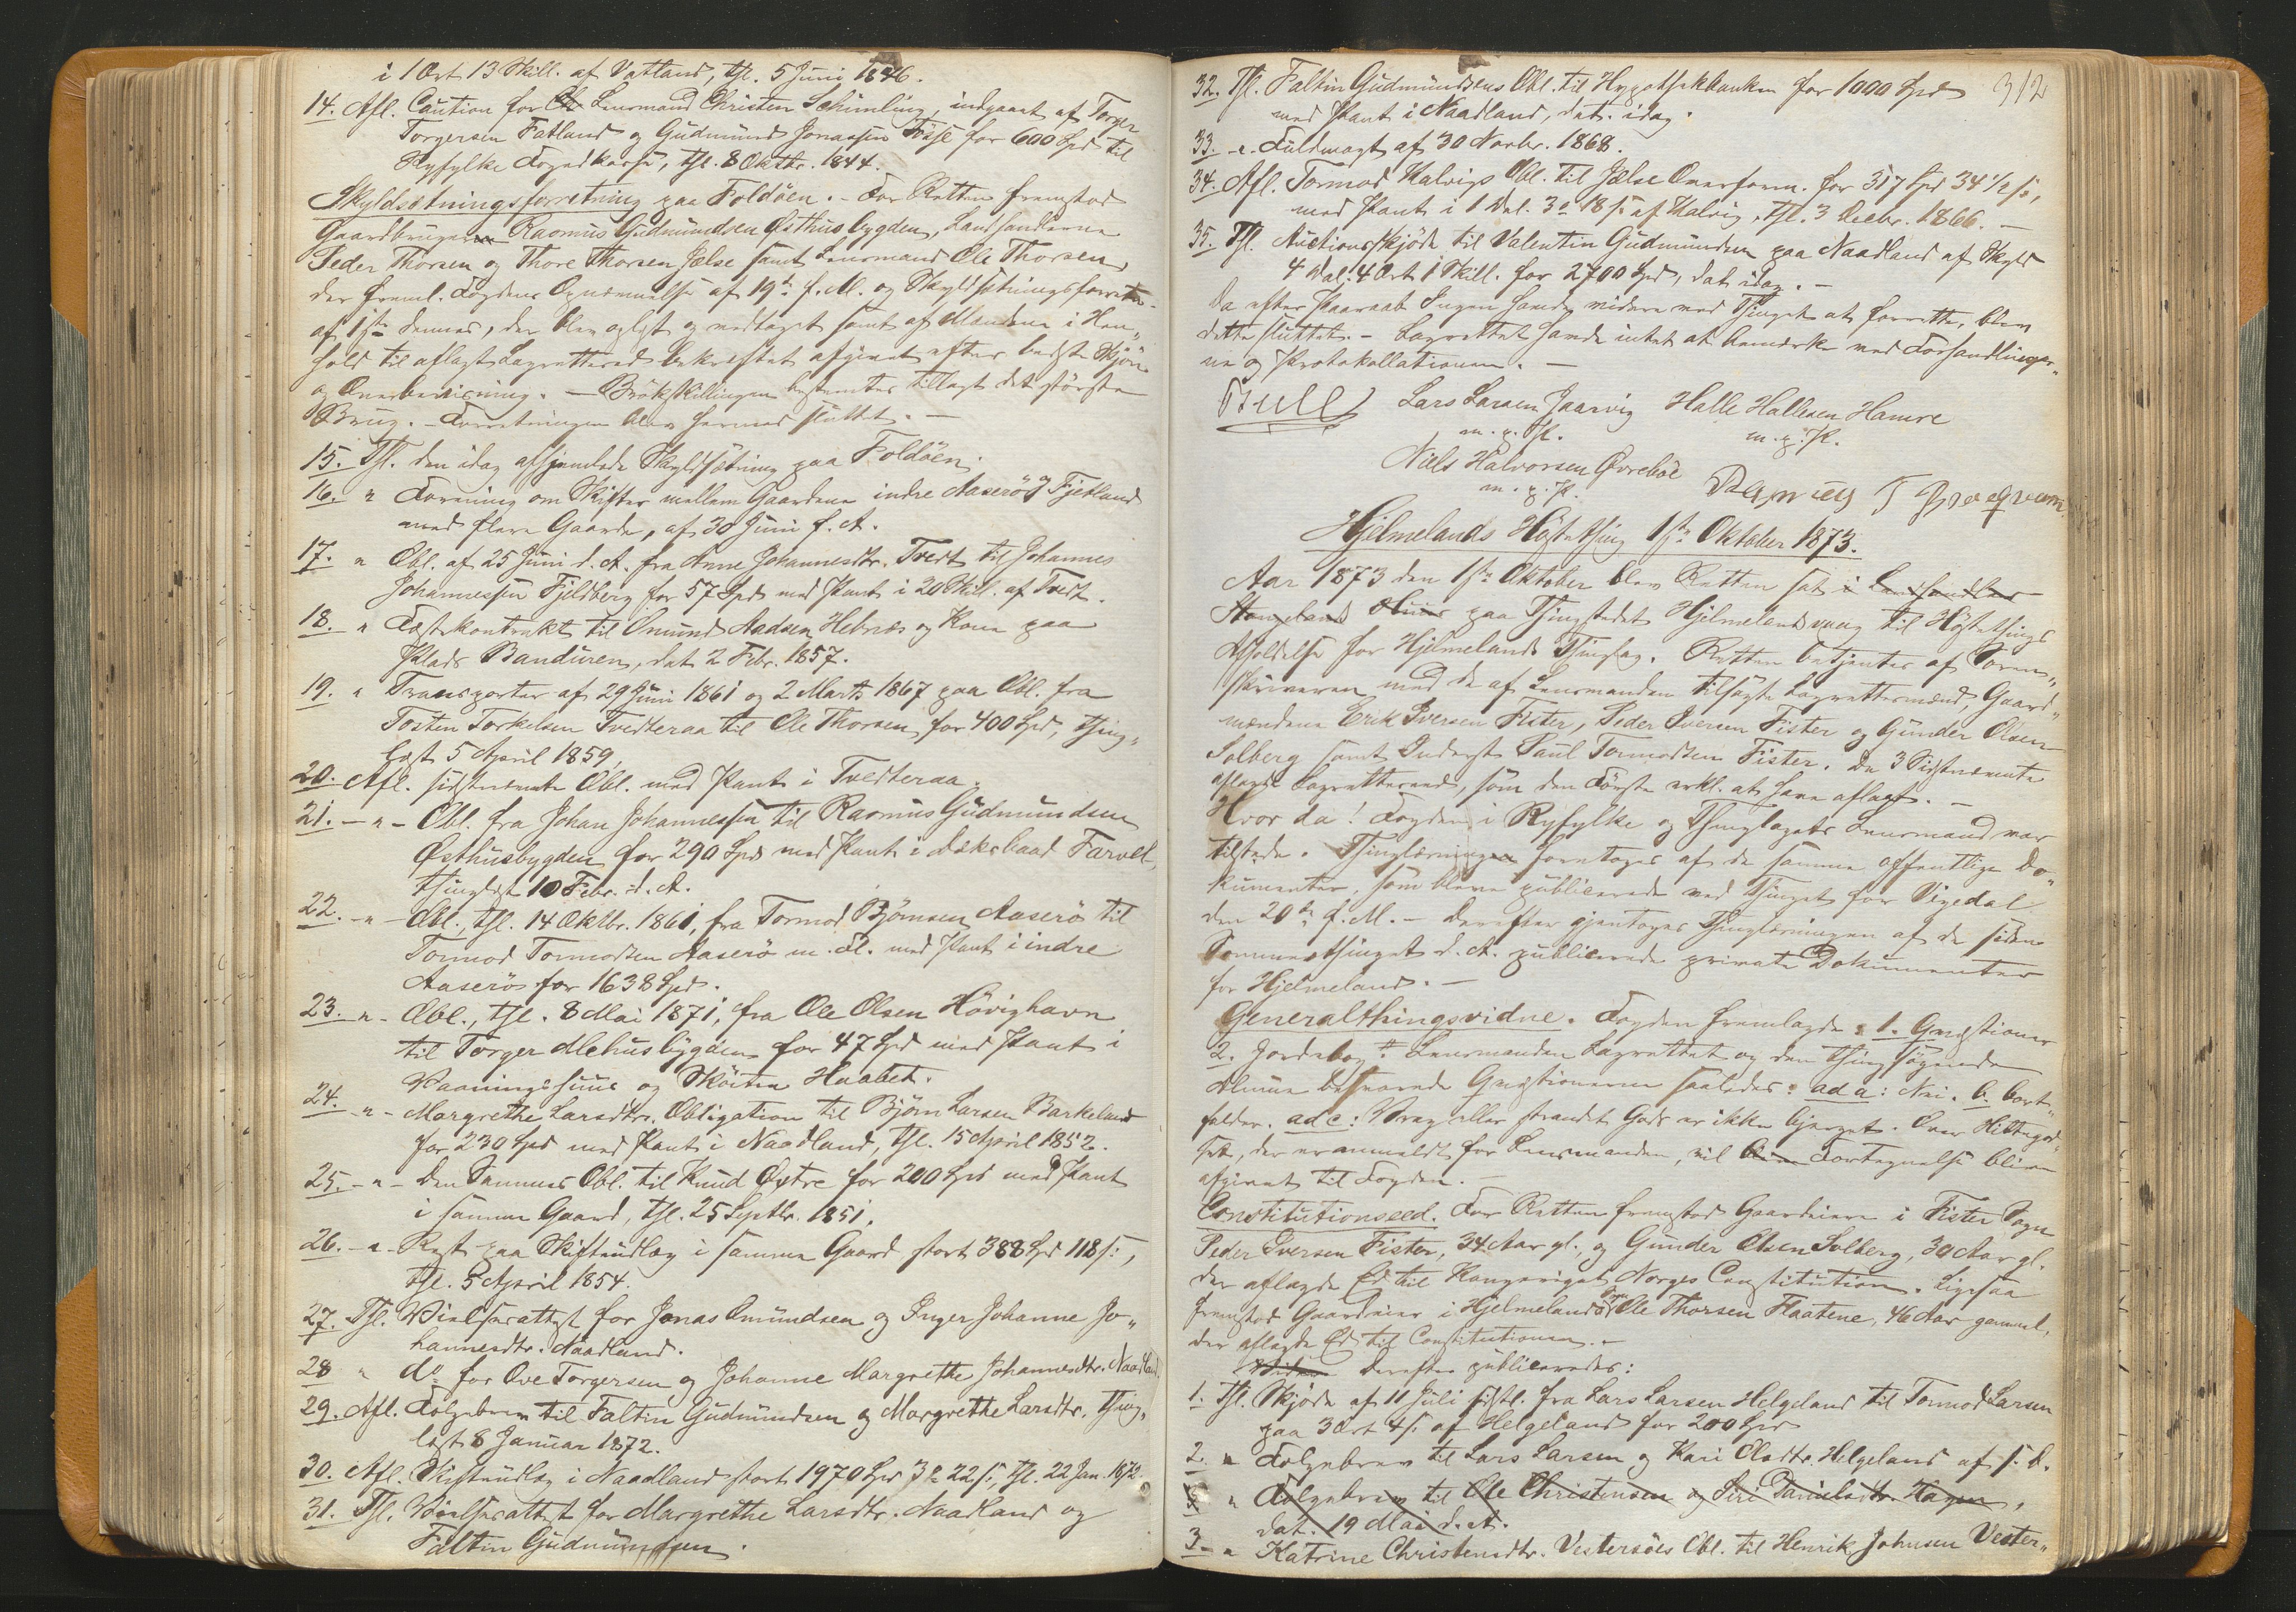 i 1 Ort 13 Skill. af Vatland, thl. 5 Juni 1846.
14. Afl. Caution for Lensmand Christen Schimling, indgaaet af Torger
Torgersen Fatland og Gudmund Jonassen Foss for 600 Spd til
Ryfylke Fogedkasse, thl. 8 Oktbr. 1844.
Skyldsætningsforretning paa Foldöen. – For Retten fremstod
Gaardbruger Rasmus Gudmundsen Østhusbygden, Landhandlerne
Peder Thorsen og Thore Thorsen Jelse samt Lensmand Ole Thorsen,
der freml. Fogdens Opnævnelse af 19de f. M. og Skyldsætningsforretn.
af 1ste dennes, der blev oplæst og vedtaget samt af Mændene i Hen„
hold til aflagt Lagrettesed bekræftet afgivet efter bedste Skjön
og Overbeviisning. – Brökskillingen bestemtes tillagt det störste
Brug. – Forretningen blev hermed sluttet. –
15. Thl. den idag afhjemlede Skyldsætning paa Foldöen.
16. " Forening om Skifter mellem Gaardene indre Aaserö og Tjetland
med flere Gaarde, af 30 Juni f. A.
17. " Obl. af 25 Juni d. A. fra Anne Johannesdtr. Tvedt til Johannes
Johannessen Fjeldberg for 57 Spd med Pant i 20 Skill. af Tvedt.
18. " Fæstekontrakt til Omund Aadsen Hebnes og Kone paa
Plads Banduren, dat. 2 Febr. 1857.
19. " Transporter af 29 Juni 1861 og 2 Marts 1867 paa Obl. fra
Tosten Torkelsen Tvedteraa til Ole Thorsen for 400 Spd, thing„
læst 5 April 1859.
20. Afl. sidstnævnte Obl. med Pant i Tvedteraa.
21. – " – Obl. fra Johan Johannessen til Rasmus Gudmundsen
Østhusbygden for 290 Spd med Pant i Dæksbaad Farvel,
thinglæst 10 Febr. d. A.
22. – " – Obl., thl. 14 Oktbr. 1861, fra Tormod Bjömsen Aaserö til
Tormod Tormodsen Aaserö m. Fl. med Pant i indre
Aaserö for 1638 Spd.
23. – " – Obl., thl. 8 Mai 1871, fra Ole Olsen Hövighavn
til Torger Mehusbygden for 47 Spd med Pant i
Vaaningshuus og Sköiten Haabet.
24. – " – Margrethe Larsdtr. Obligation til Björn Larsen Barkeland
for 230 Spd med Pant i Naadland, thl. 15 April 1852.
25. – " – Den Sammes Obl. til Knud Oxtre for 200 Spd med Pant
i samme Gaard, thl. 25 Septbr. 1851.
26. – " – Rest paa Skifteudlæg i samme Gaard stort 388 Spd 118 s:,
thl. 5 April 1854.
27. Thl. Vielsesattest for Jonas Omundsen og Inger Johanne Jo„
hannesdtr. Naadland.
28 " do for Ove Torgersen og Johanne Margrethe Johannesdtr. Naadland.
29. Afl. Følgebrev til Faltin Gudmundsen og Margrethe Larsdtr. thing„
læst 8 Januar 1872.
30. Afl. Skifteudlæg i Naadland stort 1970 Spd 3 o 22 s:, thl. 22 Jan. 1872.
31. Thl. Vielsesattest for Margrethe Larsdtr. Naadland og
Faltin Gudmundsen.
312
32. Thl. Faltin Gudmundsens Obl. til Hypothekbanken for 1000 Spd
med Pant i Naadland, dat. idag.
33. – " – Fuldmagt af 30 Novbr. 1868.
34. Afl. Tormod Halvigs Obl. til Jelse Overform. for 317 Spd 34 1/2 s:,
med Pant i 1 Dal. 3 o 18 s. af Halvig, thl. 3 Decbr. 1866. –
35. Thl. Auctionsskjöde til Valentin Gudmundsen paa Naadland af Skyld
4 Dal. 4 Ort 1 Skill. for 2700 Spd, dat. idag. –
Da efter Paaraab Ingen havde videre ved Thinget at forrette, blev
dette sluttet. – Lagrettet havde intet at bemærke ved Forhandlinger„
ne og Protokollationen. –
Bull
Lars Larsen Jaarvig Halle Hallesen Hamre
m. p. P. m. p. P.
Niels Halvorsen Øvreböe
m. p. P.
Rasmus T
Hjelmelands Höstething 1ste Oktober 1873.
Aar 1873 den 1ste Oktober blev Retten sat i Landhandler
Huus paa Thingstedet Hjelmelandsvaag til Höstethings
Afholdelse for Hjelmelands Thinglag. Retten betjentes af Soren„
skriveren med de af Lensmanden tilsagte Lagrettesmænd, Gaard„
mændene Erik Iversen Fister, Peder Iversen Fister og Gunder Olsen
Solberg samt Inderst Paul Tormodsen Fister. De 3 Sidstnævnte
aflagde Lagrettesed, som den Förste erkl. at have aflagt. –
Hvor da! Fogden i Ryfylke og Thinglagets Lensmand var
tilstede. Thinglæsningen foretoges af de samme offentlige Do„
kumenter, som bleve publicerede ved Thinget for Vigedal
den 20de f. M. – Derefter gjentoges Thinglæsningen af de siden
Sommerthinget d. A. publicerede private Dokumenter
for Hjelmeland. –
Generalthingsvidne. Fogden fremlagde: 1. Qvæstioner
2. Jordebog. Lensmanden Lagrettet og den thingsögende
Almue besvarede Qvæstionerne saaledes: ad a: Nei. b. bort„
falder. ad c: Vrag eller strandet Gods er ikke bjerget. Over Hittegod„
set, der er anmeldt for Lensmanden, vil Fortegnelse blive
afgivet til Fogden. –
Constitutionseed. For Retten fremstod Gaardeiere i Fister Sogn
Peder Iversen Fister, 34 Aar gl., og Gunder Olsen Solberg, 30 Aar gl.
der aflagde Ed til Kongeriget Norges Constitution. Ligesaa
fremstod Gaardeier i Hjelmelands Sogn Ole Thorsen Flaatene, 46 Aar gammel,
der aflagde Ed til Constitutionen. –
Derefter publiceredes:
1. Thl. Skjöde af 11 Juli sidstl. fra Lars Larsen Helgeland til Tormod Larsen
paa 3 Ort 4 s. af Helgeland for 200 Spd
2. " Folgebrev til Lars Larsen og Kari Olsdtr. Helgeland af s. D.
3 " Følgebrev til Ole Christensen og Siri Danielsdtr. Hagen,
dat. 19 Mai d. A.
3 – " Katrine Christensdtr. Vestersöes Obl. til Henrik Johnsen Vester„